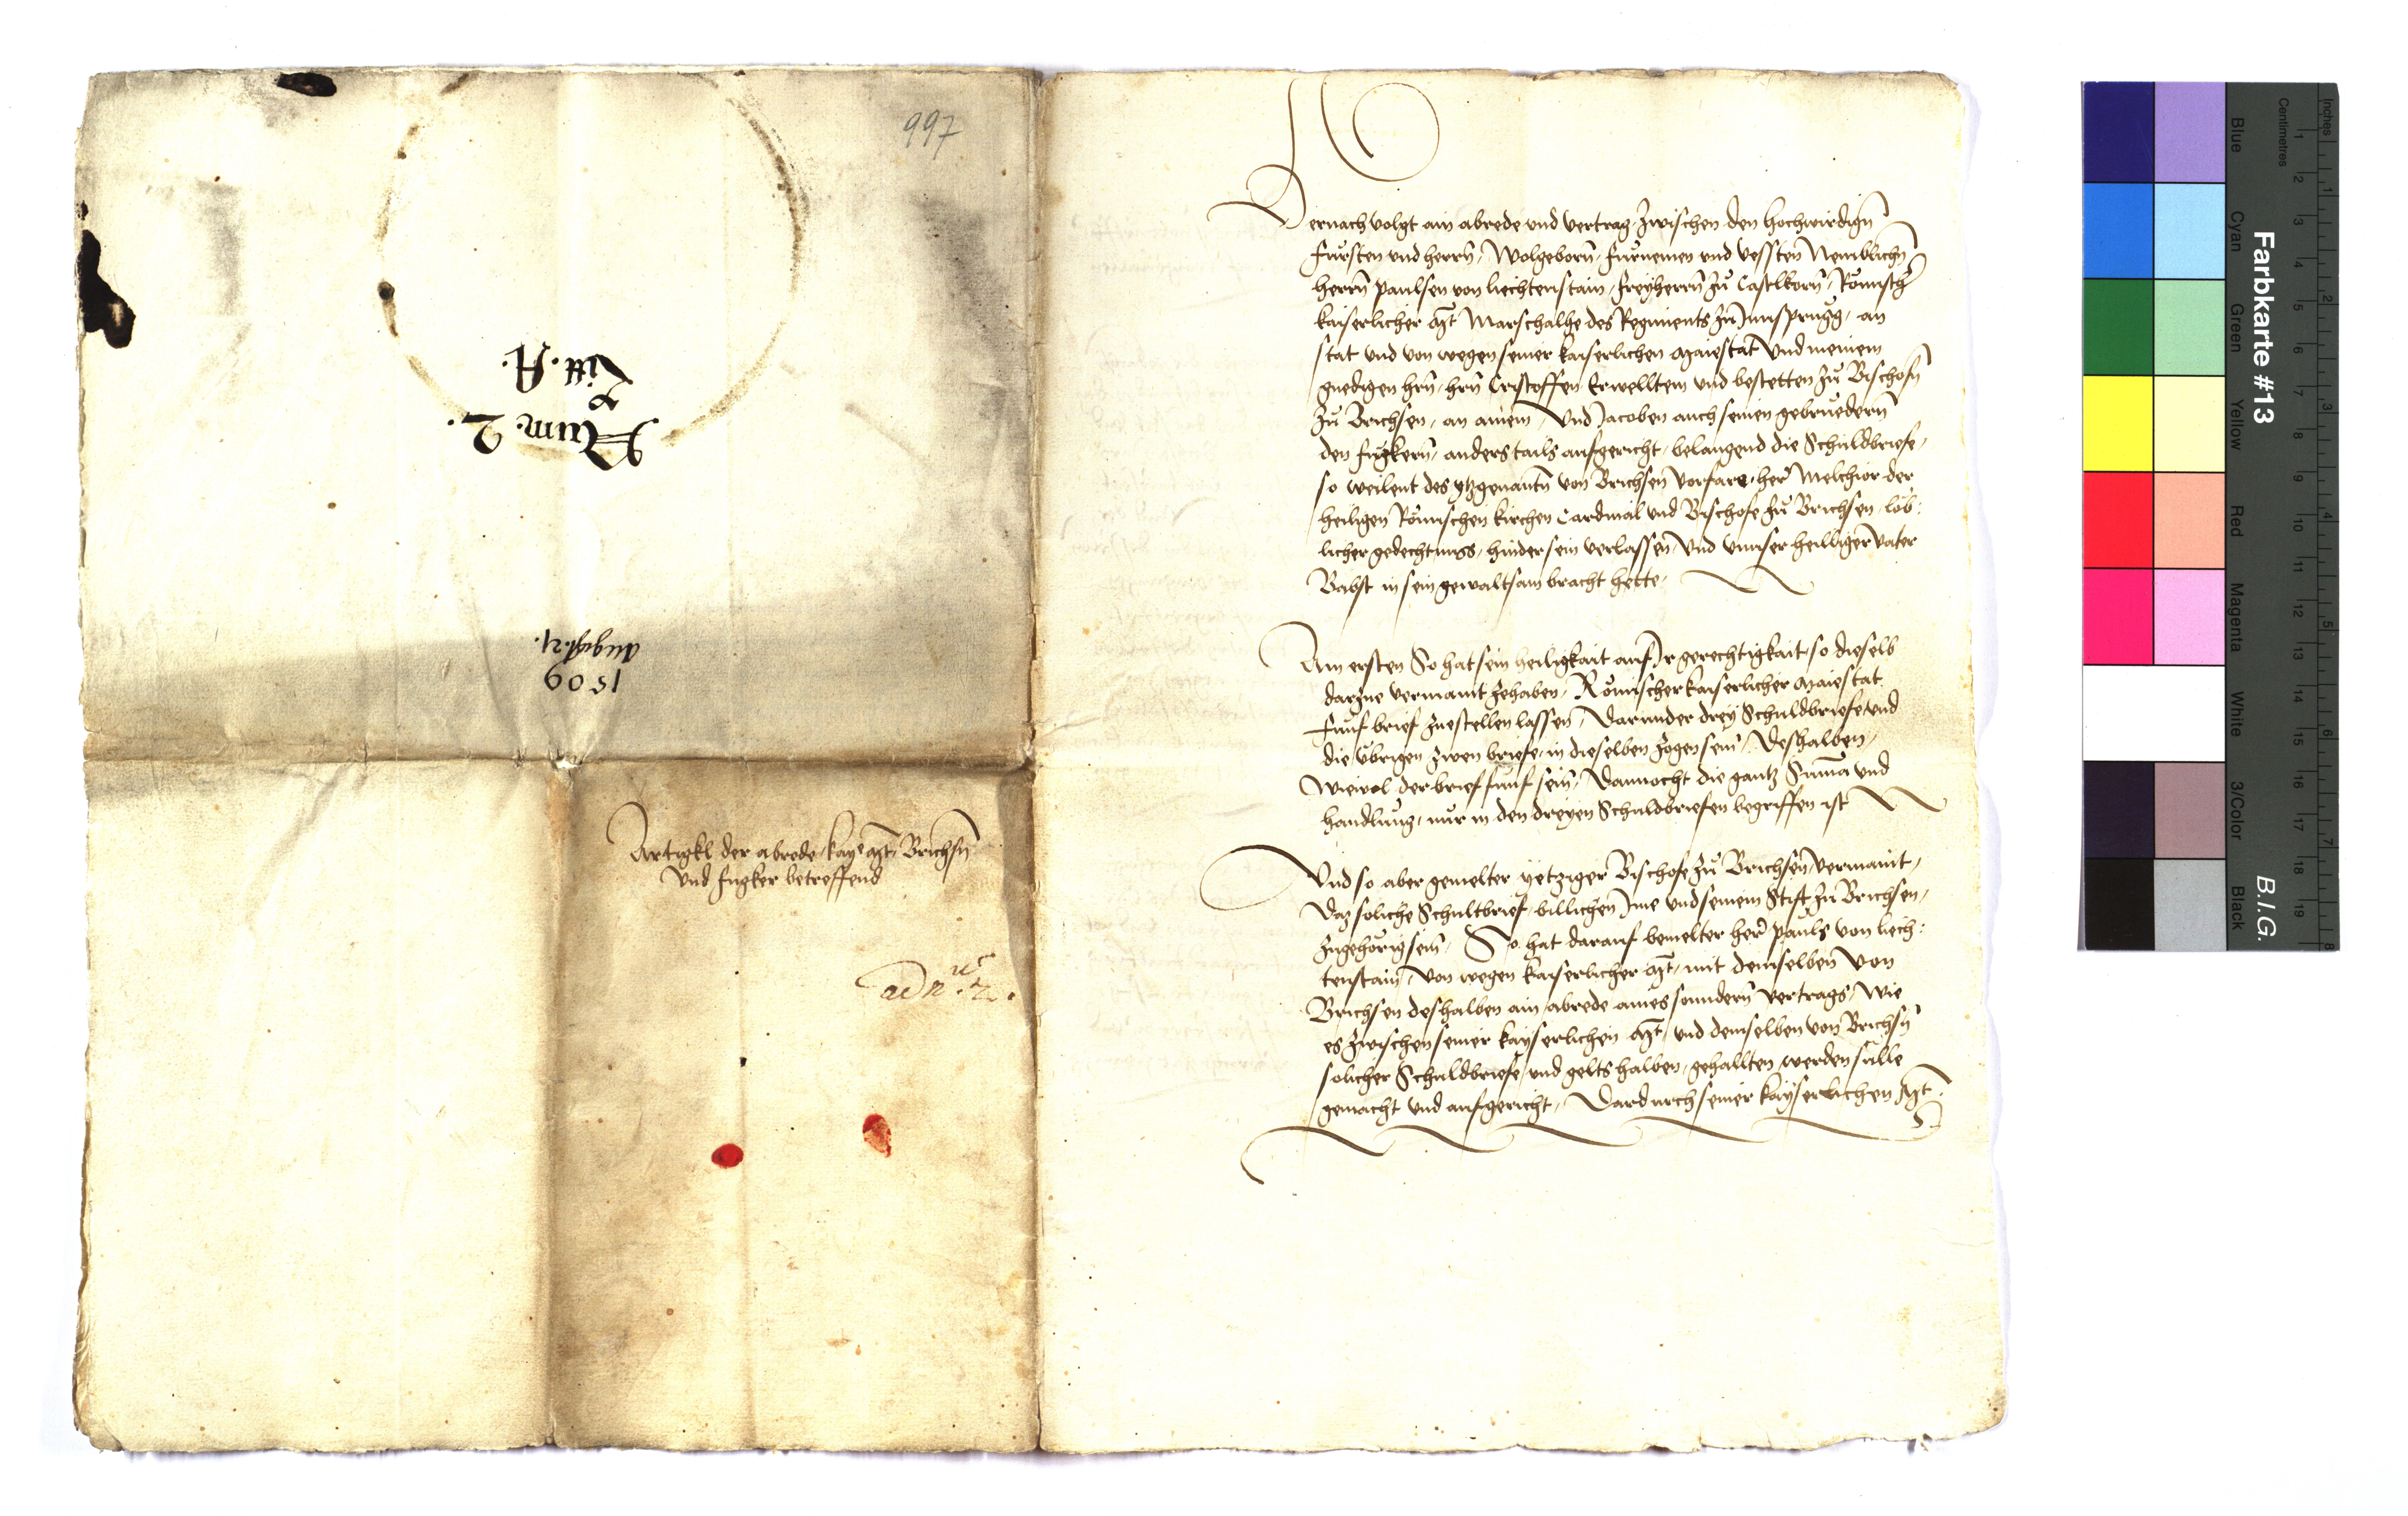 997
Num. 2.
&
Litt. A.
1509
August. 21.
Artigkl der abrede kaye Mt Brichsn
Und Fugker betreffend
ad nus. 2.
Hernach volgt ain abrede und vertrag, Zwischen den Hochwirdign
Fürsten und herrn, Wolgeborn, fürnemen und Vessten Nemblichn
herrn Paulsen von Liechtenstain, freyherrn Zů Castlkorn, Römischr
kaiserlicher Mt Marschalhe des Regiments Zů Innsprugg, an
stat und von wegen seiner kaiserlichen Maiestat Und meinem
gnedigen hrn, hrn Cristoffen Erwelltem und bestetten Zů Bischofn
Zů Brichsen, an ainem, Und Jacoben auch seinen gebruedern
den Fugkern, anders tails aufgericht, belangend die Schuldbriefe,
so weilent des ytzgenantn von Brichsen Vorfare, her Melchior der
heiligen Römischen kirchen Cardinal und Bischofe Zů Brichsen, löb:
licher gedechtnuss, hinder sein verlassen, Und unnser heilliger Vater
Babst in sein gewaltsam bracht hette,
Am ersten So hat sein heiligkait auf Ir gerechtigkait, so dieselb
darzue vermaint zehaben, Römischer kaiserlicher Maiestat
Fünf brief zuestellen lassen, Darunder drey Schuldbriefe, und
die übrigen zwen briefe, in dieselben gezogen sein, Deshalben,
Wiewol der brief fünf sein, Dannocht die gantz Summa und
handlung, nür in den dreyen Schuldbriefen begriffen ist
Und so aber gemelter yetziger Bischofe Zů Brichsen, vermaint,
Daz soliche Schultbrief, billichen Ime und seinem Stift Zů Brichsen,
Zugehörig sein, So hat darauf bemelter her Pauls von Liech:
tenstain, von wegen kaiserlicher Mt, mit demselben von
Brichsen deshalben ain abrede aines sunndern vertrags, Wie
es Zwischen seiner kayserlichen Mt, und demselben von Brichsn
solicher Schuldbriefe, und gelts halben, gehallten werden sulle
gemacht und aufgericht, Dardurch seiner kayserlichen Mt
Farbkarte #13
B.I.G.
Blue
Cyan
Green
Yellow
Red
Magenta
White
3/Color
Black
Inches
Centimetres
1 2 3 4 5 6 7 8 9 10 11 12 13 14 15 16 17 18 19
1 2 3 4 5 6 7 8